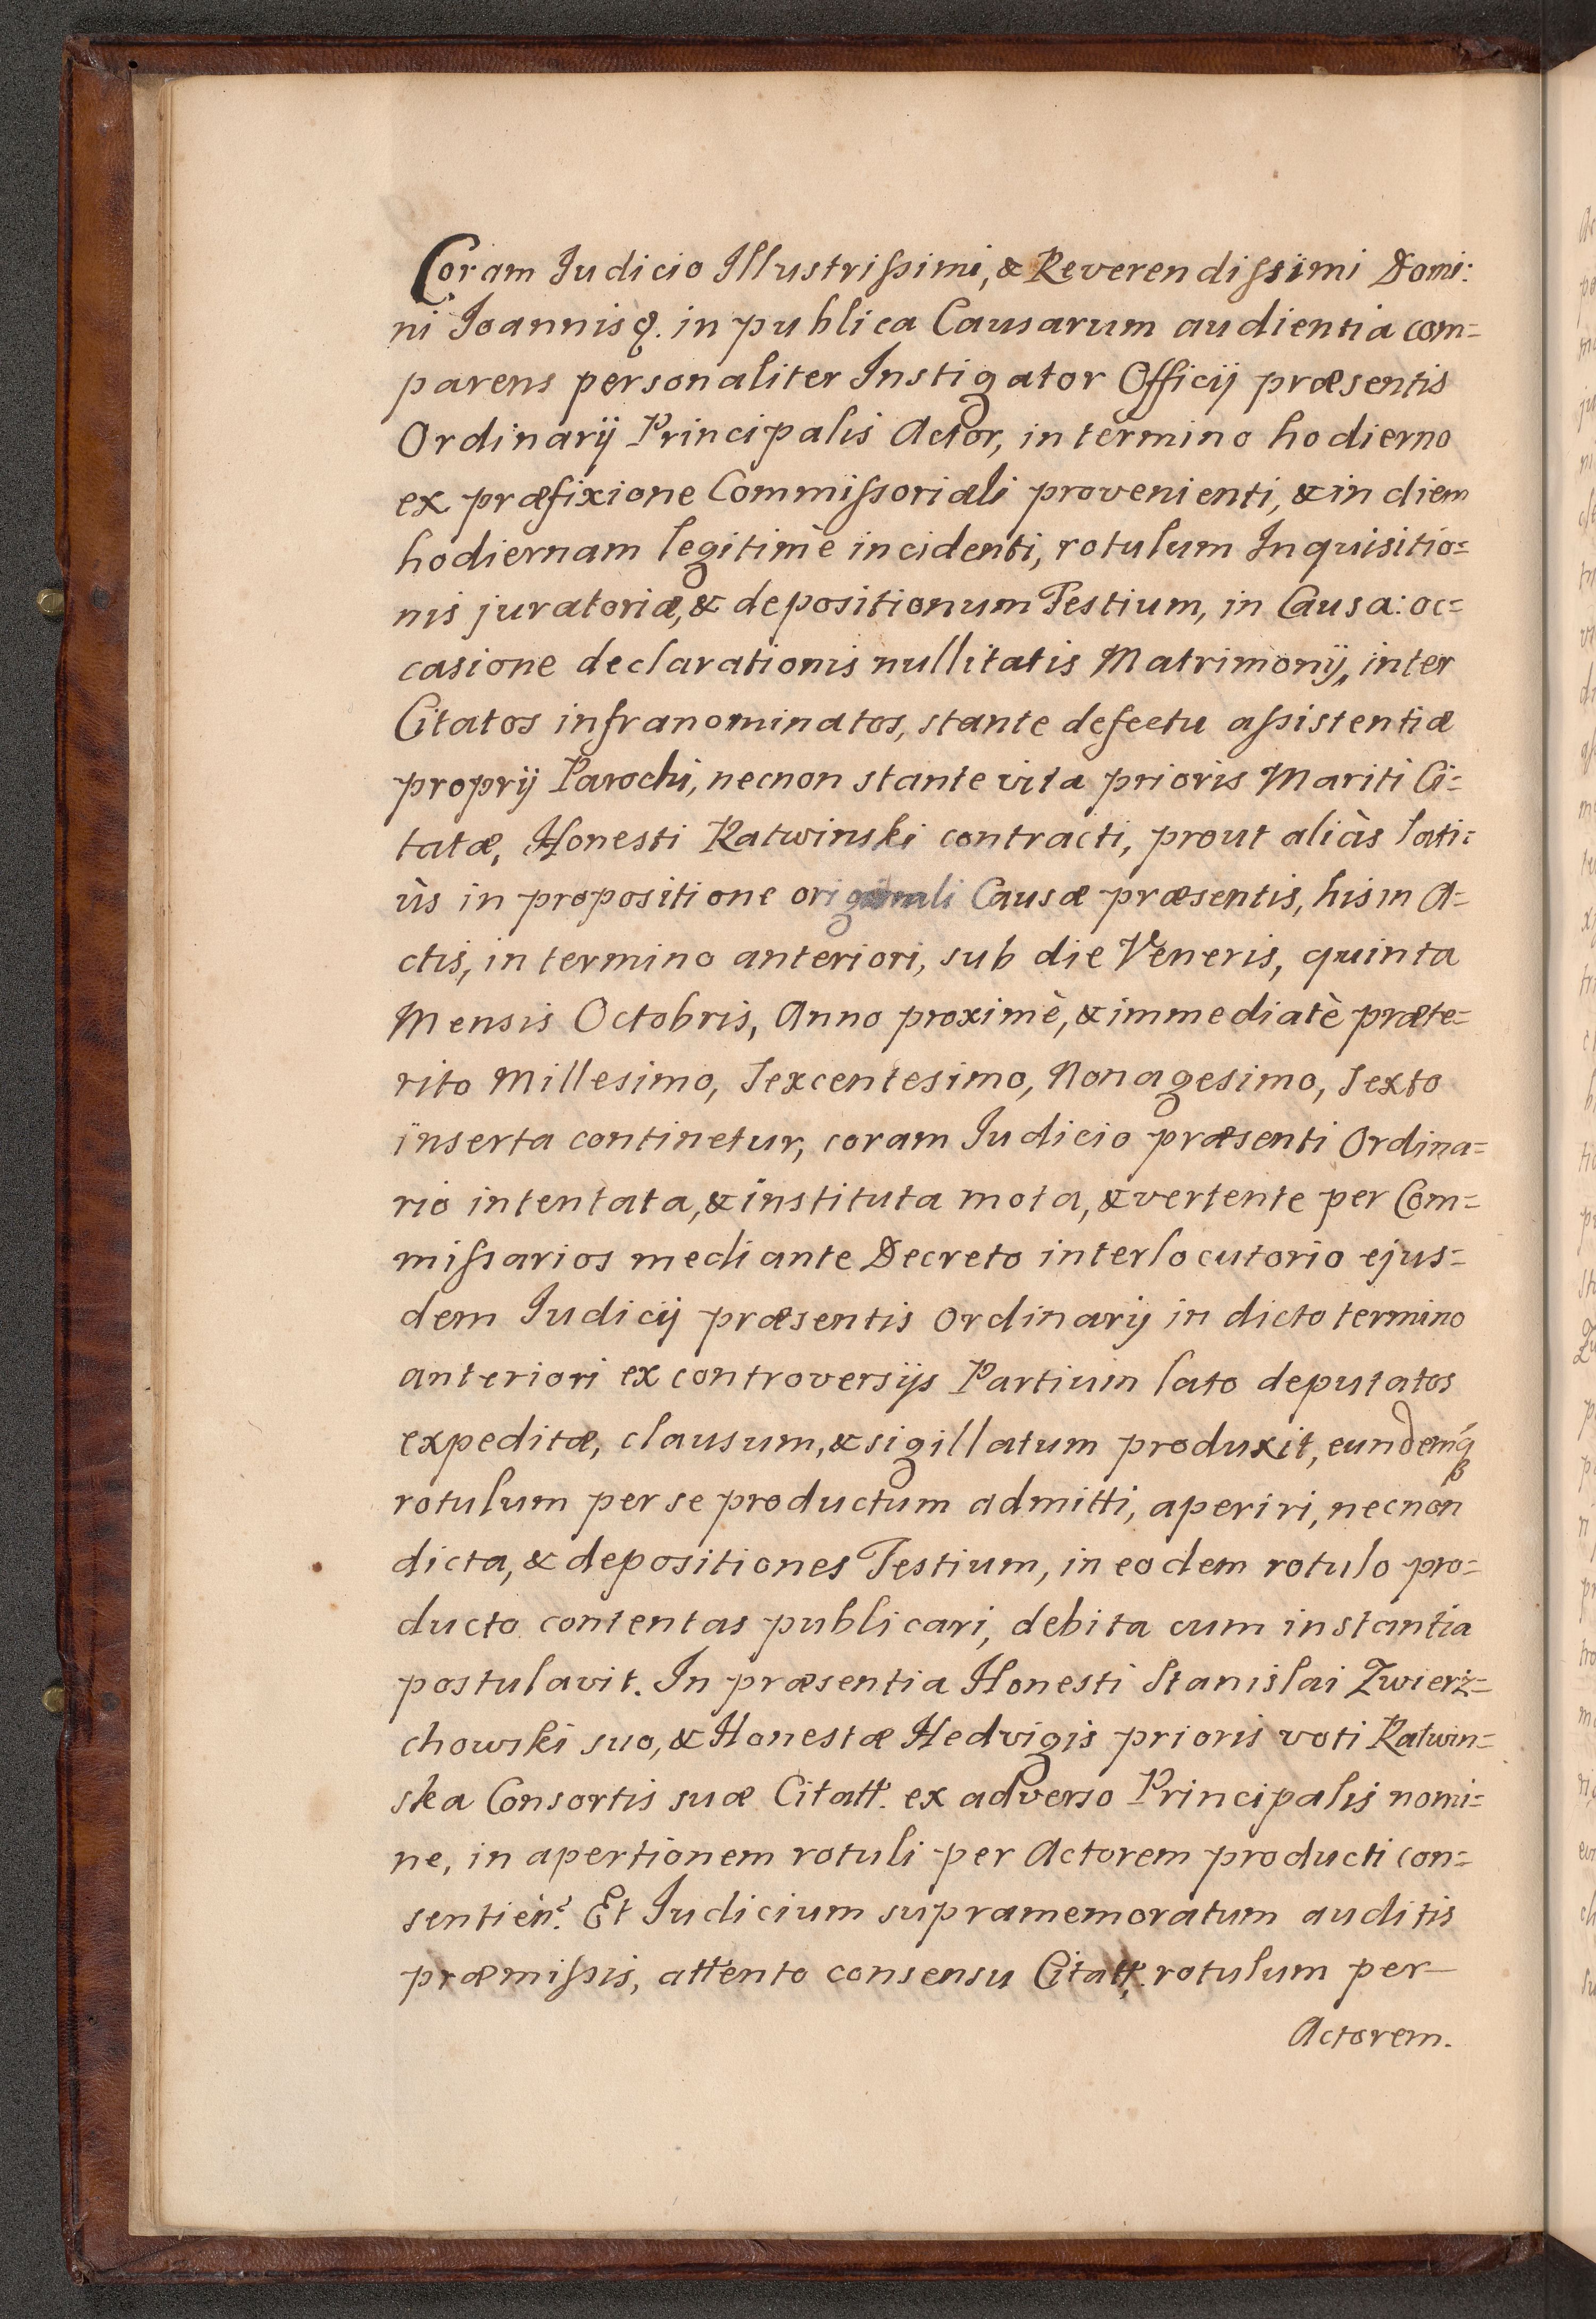 Coram Iudicio Illustrißimi, & Reverendißimi Domi:
ni Ioannis &. in publica Causarum audientia com=
parens personaliter Instigator Officij præsentis
Ordinarij Principalis Actor, in termino hodierno
ex præfixione Commißoriali provenienti, & in diem
hodiernam legitimè incidenti, rotulum Inquisitio=
nis juratoriæ, & depositionum Testium, in Causa: oc=
casione declarationis nullitatis Matrimonij, inter
Citatos infranominatos, stante defectu aßistentiæ
proprij Parochi, necnon stante vita prioris Mariti Ci=
tatæ, Honesti Ratwinski contracti, prout aliàs lati=
ùs in propositione originali Causæ præsentis, his in A=
ctis, in termino anteriori, sub die Veneris, quinta
Mensis Octobris, Anno proximè, & immediatè præte=
rito Millesimo, Sexcentesimo, Nonagesimo, Sexto
inserta continetur, coram Iudicio præsenti Ordina=
rio intentata, & instituta mota, & vertente per Com=
mißarios mediante Decreto interlocutorio ejus=
dem Iudicij præsentis Ordinarij in dicto termino
anteriori ex controversijs Partium lato deputatos
expeditæ, clausum, & sigillatum produxit, eundemq́
rotulum per se productum admitti, aperiri, necnon
dicta, & depositiones Testium, in eodem rotulo pro=
ducto contentas publicari, debita cum instantia
postulavit. In præsentia Honesti Stanislai Zwierz=
chowski suo, & Honestæ Hedvigis prioris voti Ratwin=
ska Consortis suæ Citatt. ex adverso Principalis nomi=
ne, in apertionem rotuli per Actorem producti con=
sentien. Et Iudicium supramemoratum auditis
præmißis, attento consensu Citatt. rotulum per
Actorem.